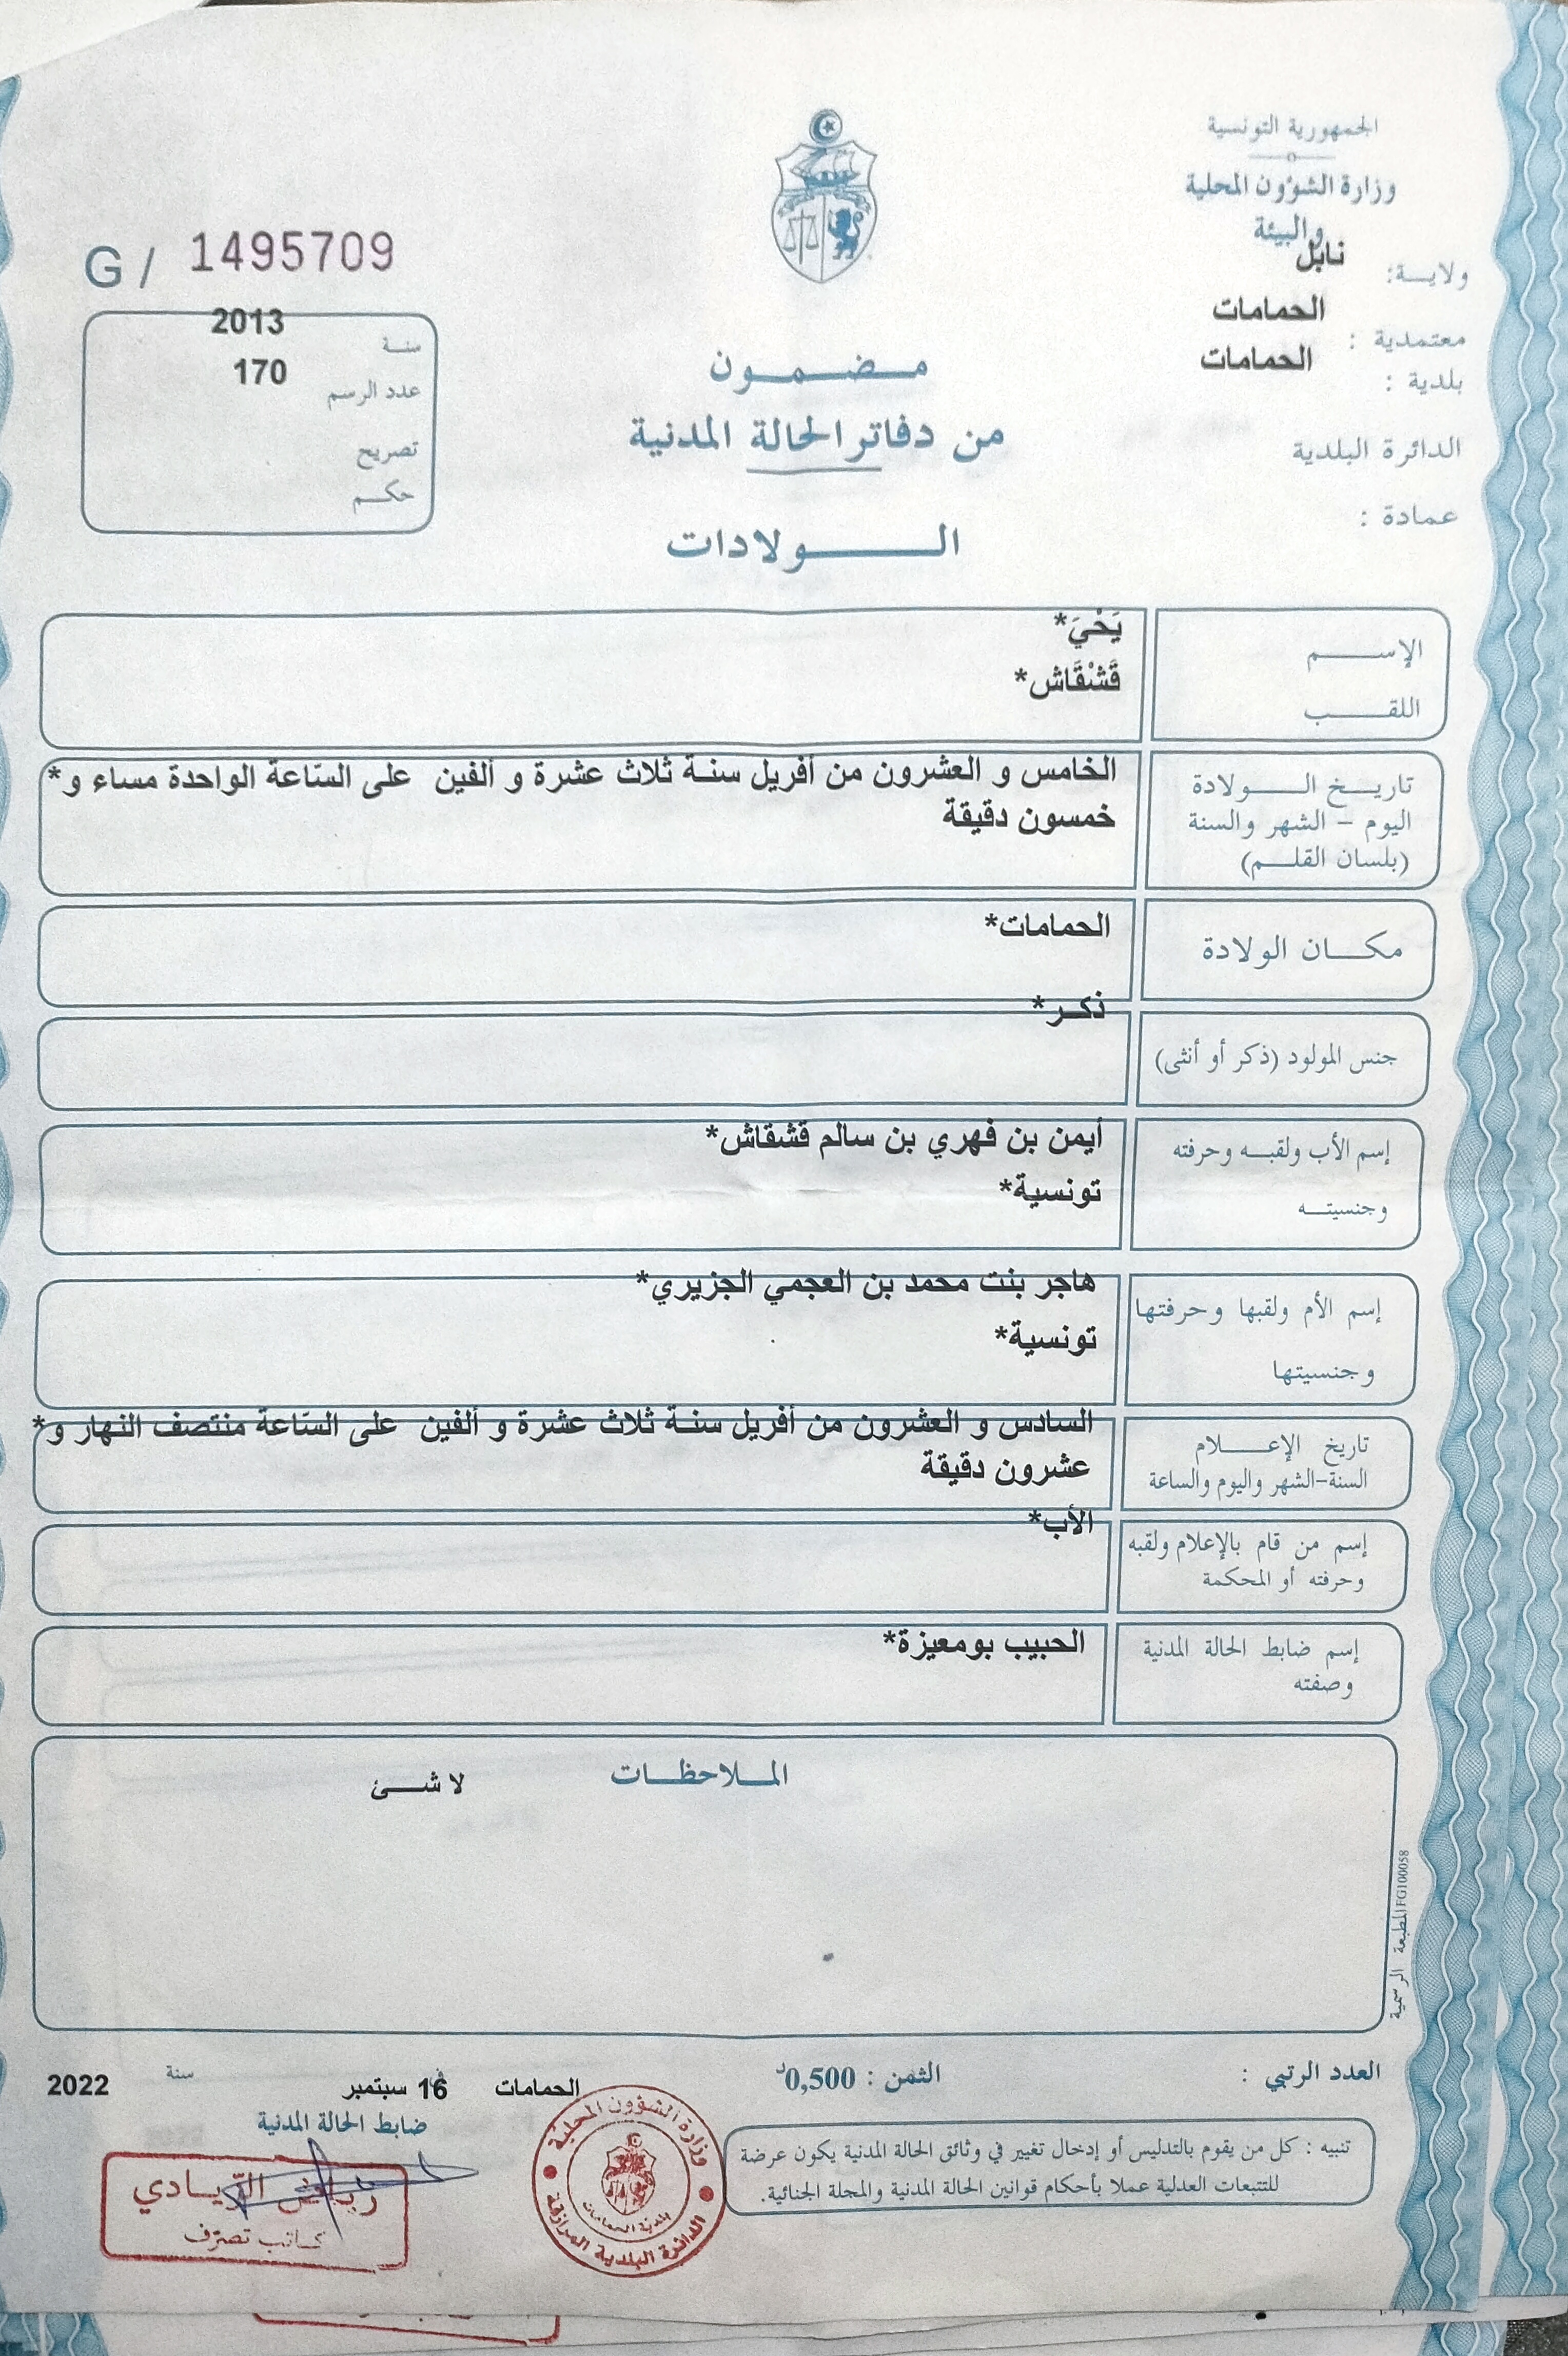 الجمهورية التونسية
وزارة الشؤون المحلية
والبيئة
ولايـــة: نابل
معتمدية : الحمامات
بلدية : الحمامات
الدائرة البلدية
عمادة :
G / 1495709
سنـة 2013
عدد الرسم 170
تصريح
حكـم
مـضـمـون
من دفاتر الحالة المدنية
الـولادات
الإســـم يَحْيَ*
اللقـــب قَشْقَاش*
تاريـخ الـــولادة
اليوم – الشهر والسنة
(بلسان القلـم)
الخامس و العشرون من أفريل سنـة ثلاث عشرة و ألفين على السّاعة الواحدة مساء و*
خمسون دقيقة
مكـــان الولادة الحمامات*
جنس المولود (ذكر أو أنثى) ذكـر*
إسم الأب ولقبـه وحرفته أيمن بن فهري بن سالم قشقاش*
وجنسيتـه تونسية*
إسم الأم ولقبها وحرفتها هاجر بنت محمد بن العجمي الجزيري*
وجنسيتها تونسية*
تاريخ الإعـــلام
السنة-الشهر واليوم والساعة
السادس و العشرون من أفريل سنـة ثلاث عشرة و ألفين على السّاعة منتصف النهار و*
عشرون دقيقة
إسم من قام بالإعلام ولقبه
وحرفته أو المحكمة
الأب*
إسم ضابط الحالة المدنية
وصفته
الحبيب بومعيزة*
المـلاحظـات
لا شـئ
المطبعة الرسمية FG100058
العدد الرتبي :
الثمن : 0,500د
الحمامات في 16 سبتمبر سنة 2022
ضابط الحالة المدنية
تنبيه : كل من يقوم بالتدليس أو إدخال تغيير في وثائق الحالة المدنية يكون عرضة
للتتبعات العدلية عملا بأحكام قوانين الحالة المدنية والمجلة الجنائية.
وزارة الشؤون المحلية
بلدية الحمامات
الدائرة البلدية المرازقة
رياض الزيادي
كاتب تصرّف